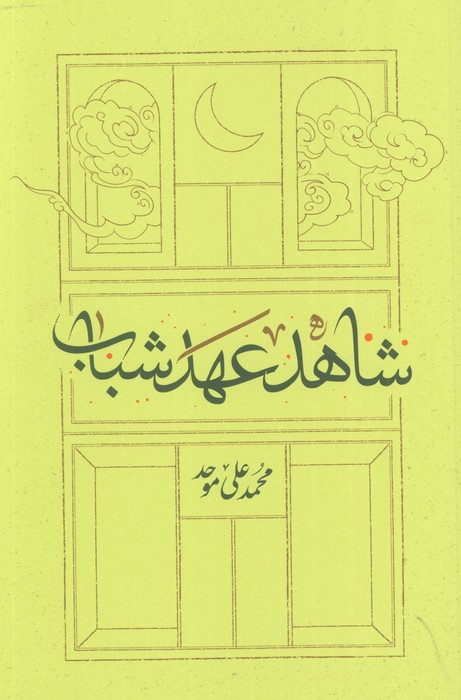 شاهد عهد شباب
محمد علی موحد